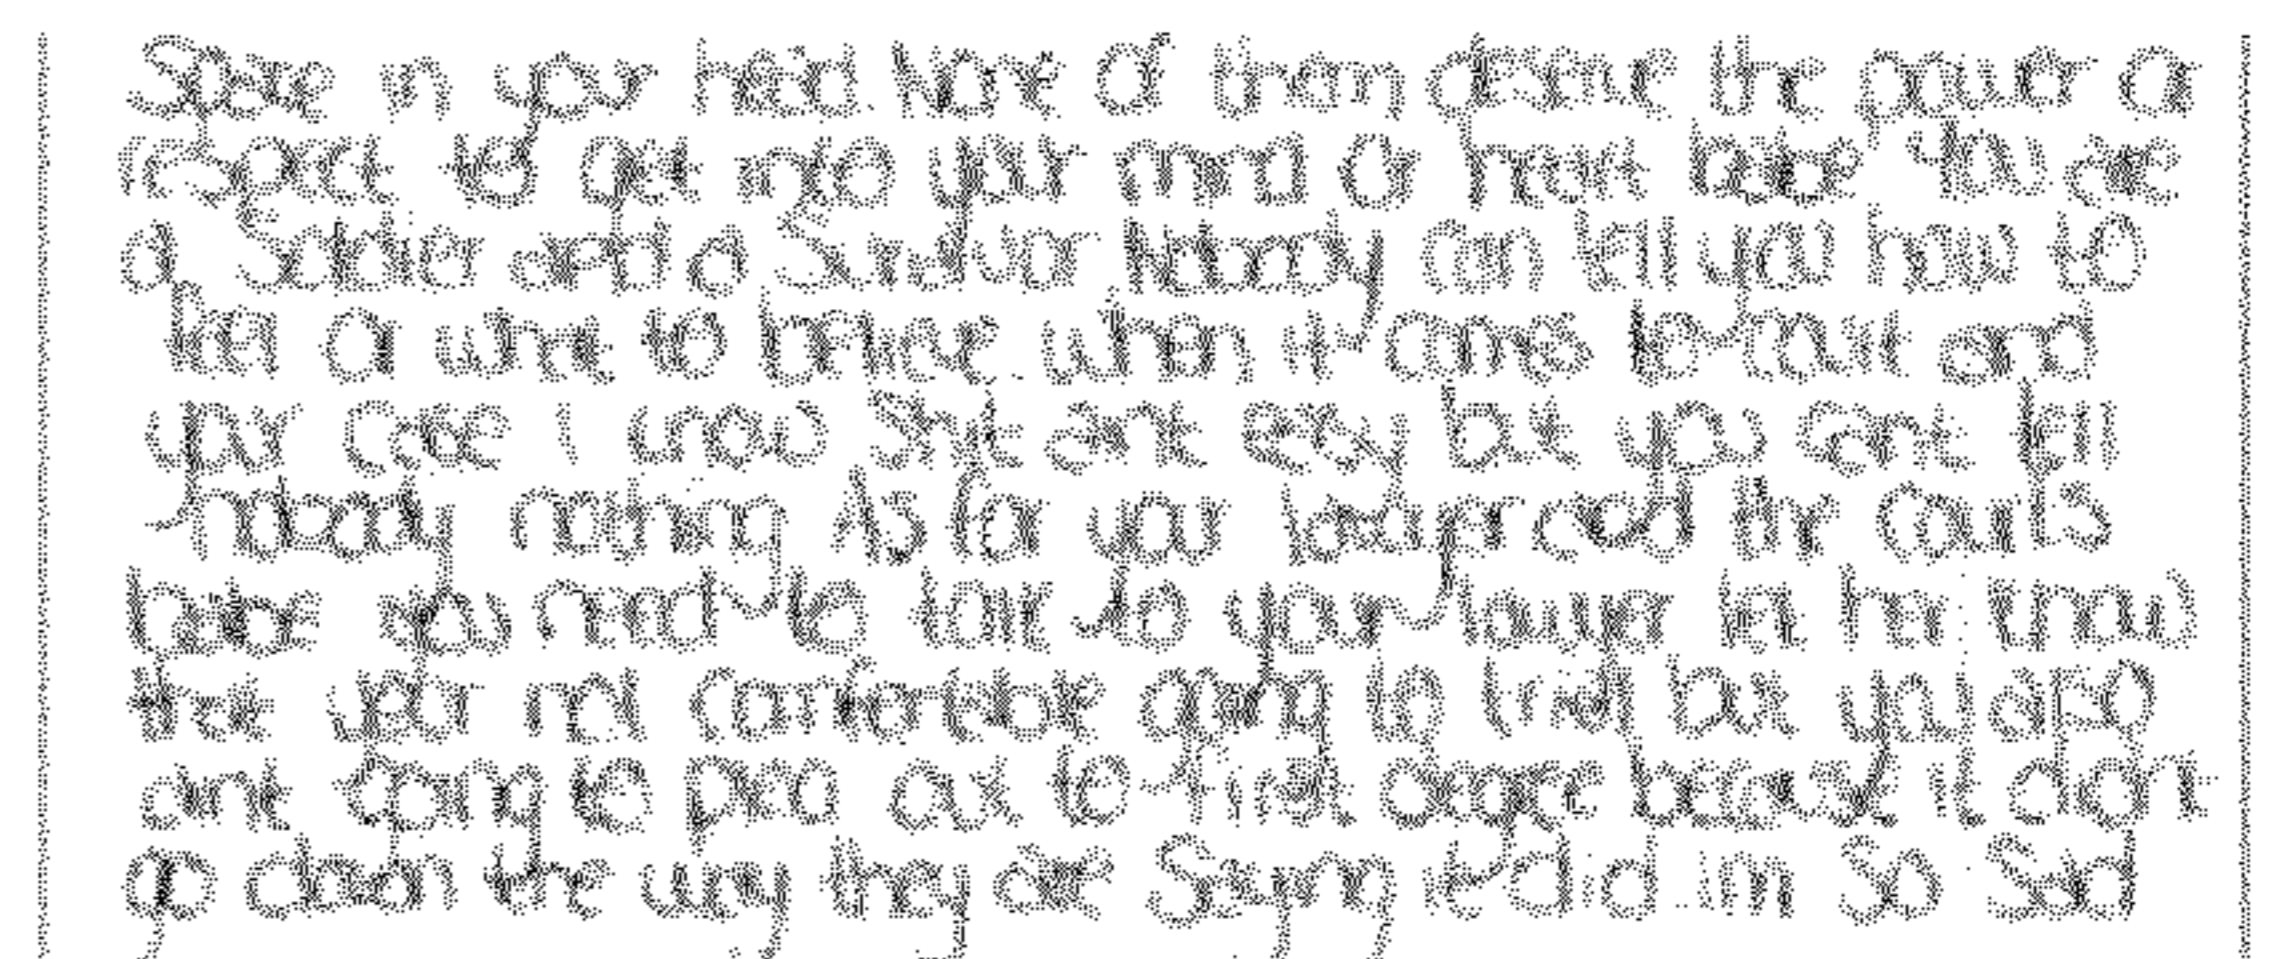 Space in your head None of them deserve the power or
respect to get into your mind or heart babe You are
a Soldier and a Survivor Nobody can tell you how to
feel or what to believe when it comes to court and
your case I know Shit aint easy but you cant tell
nobody nothing As far your lawyer and the courts
babe you need to talk to your lawyer let her know
that your not comfortable going to trial but you also
aint going to plea out to first degree because it dont
go down the way they are Saying it did im So Sad